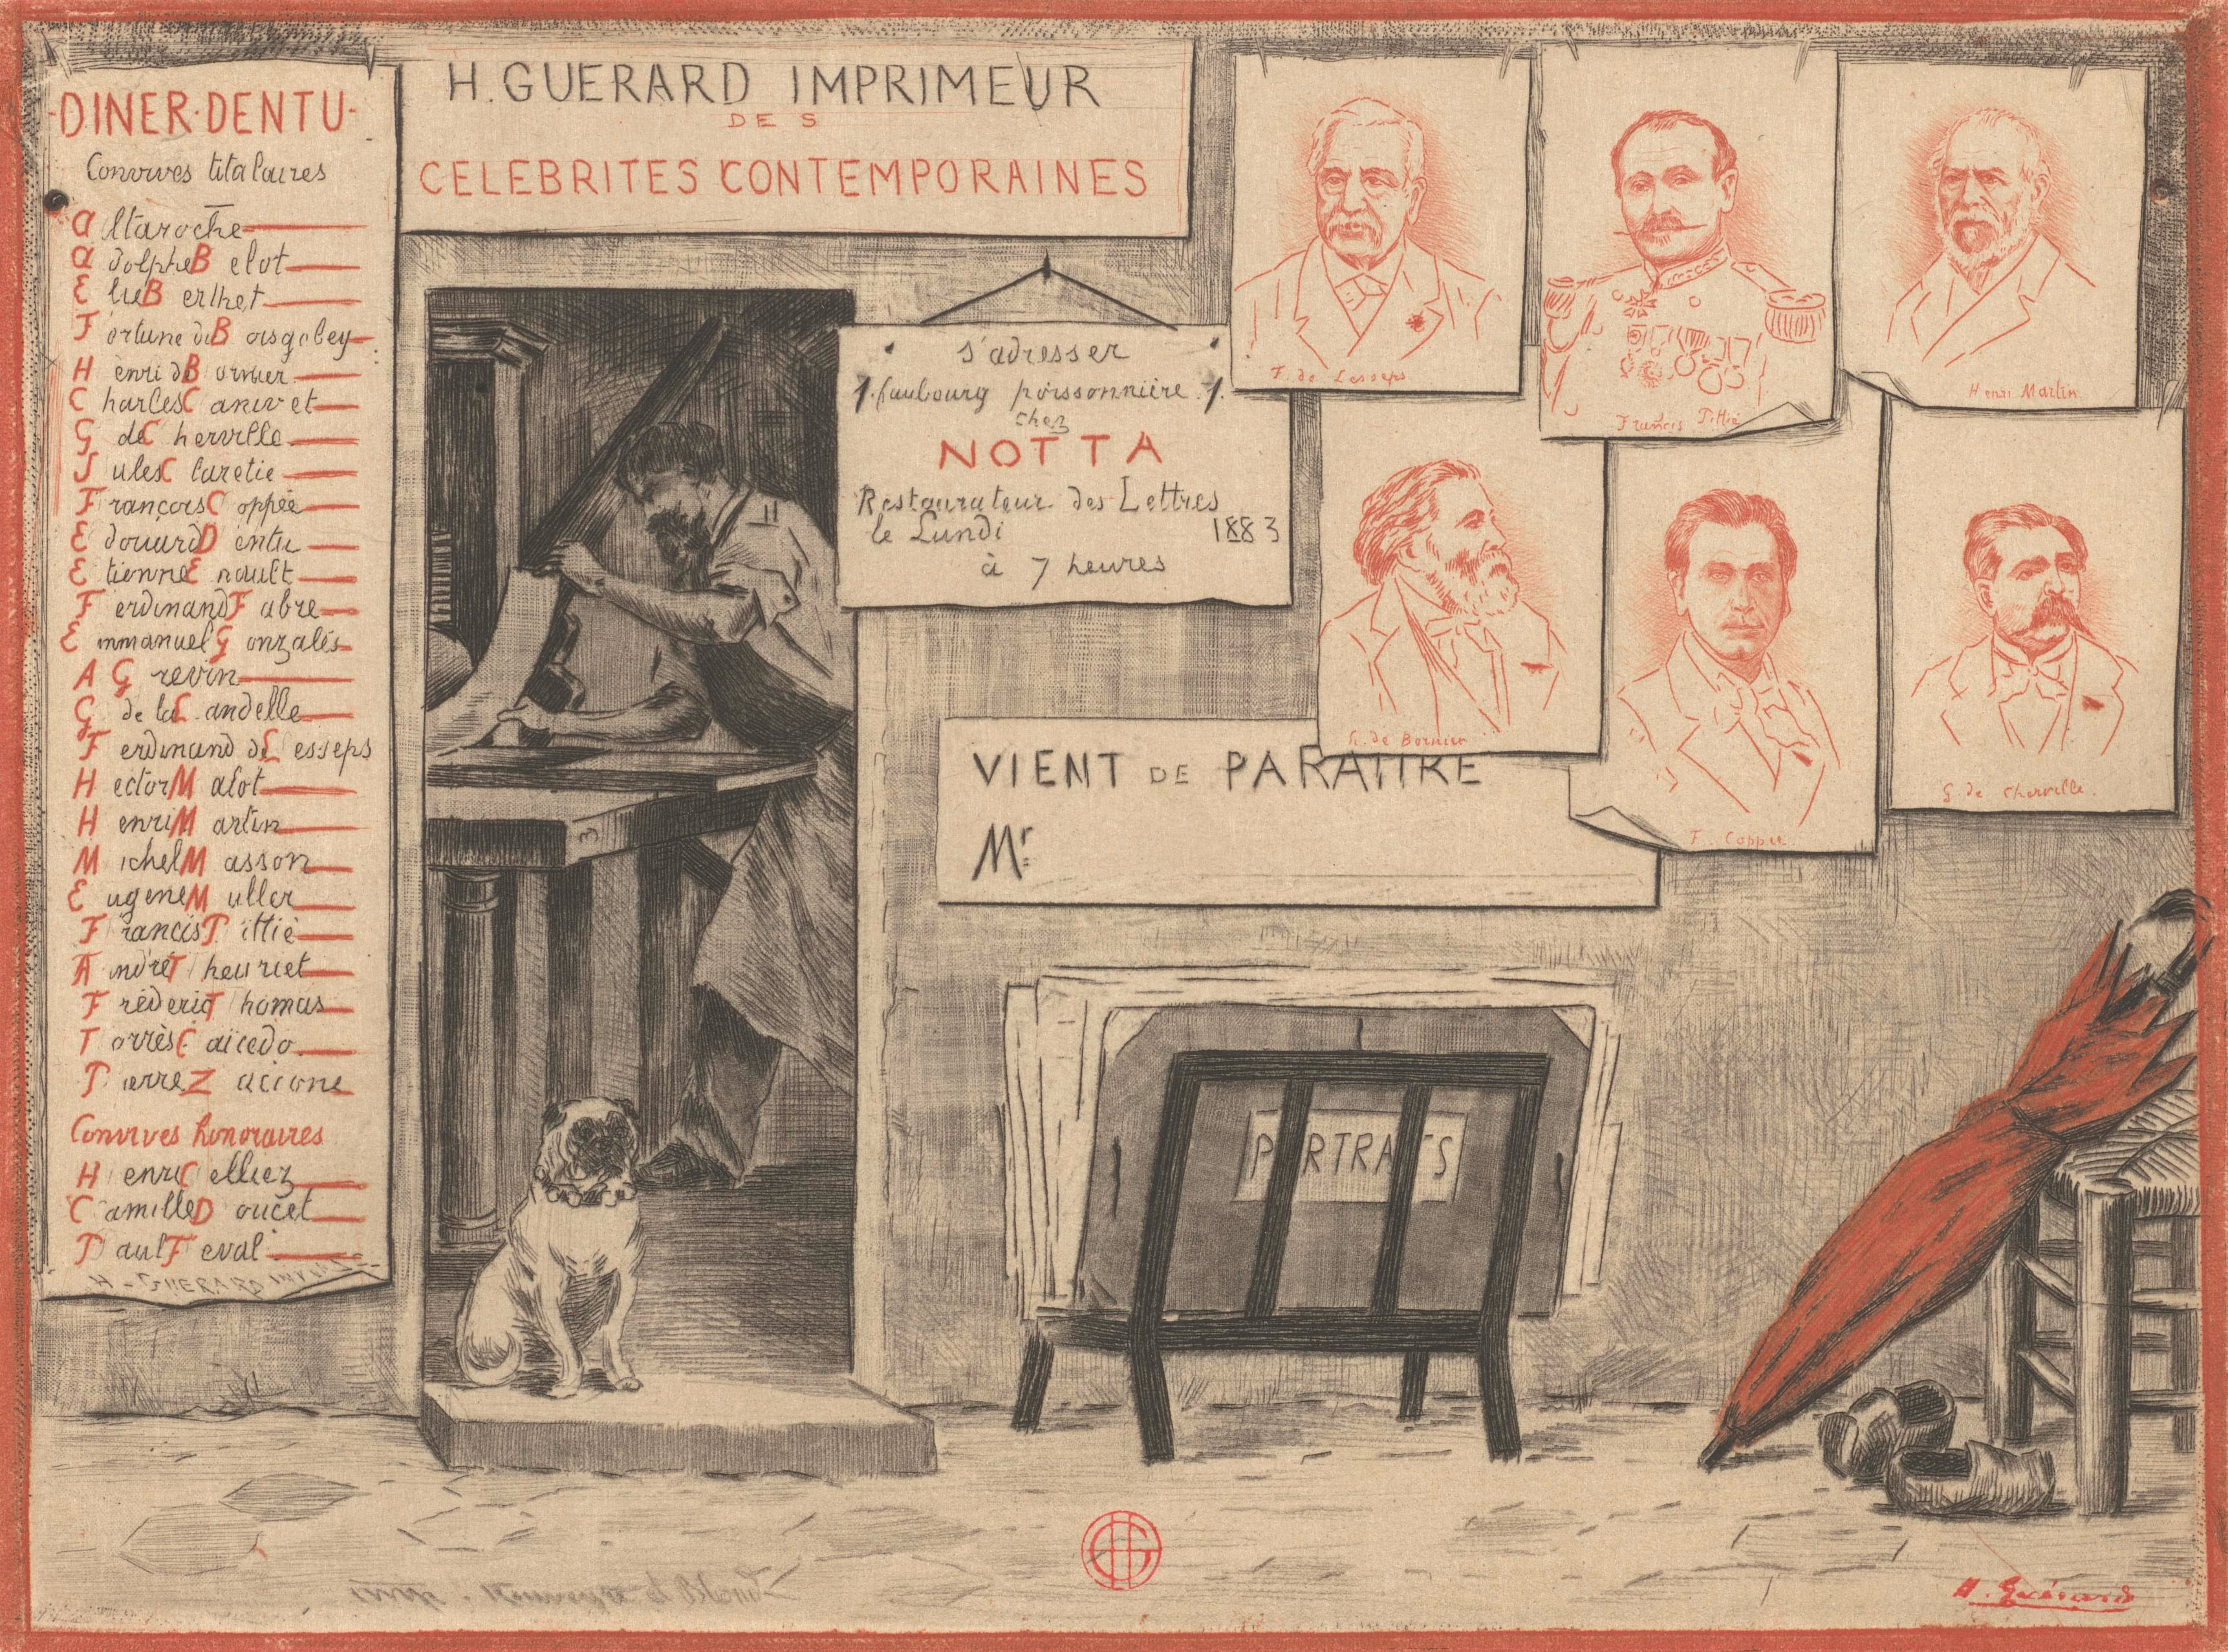 DINER DENTU
Convives titulaires
Altaroche
Adolphe Belot
Elie Berthet
Fortune du Boisgobey
Henri de Bornier
Charles Canivet
G de Cherville
Jules Claretie
François Coppée
Edouard Dentu
Etienne Enault
Ferdinand Fabre
Emmanuel Gonzalès
A Grevin
G de la Landelle
Ferdinand de Lesseps
Hector Malot
Henri Martin
Michel Masson
Eugene Muller
Francis Pittié
André Theuriet
Fréderic Thomas
Torrès Caïcedo
Pierre Zaccone
Convives honoraires
Henri Celliez
Camille Doucet
Paul Feval
H-GUERARD INV
H. GUERARD IMPRIMEUR
DES
CELEBRITES CONTEMPORAINES
s'adresser
1. faubourg poissonnière. 1.
chez
NOTTA
Restaurateur des Lettres
le Lundi 1883
à 7 heures
F. de Lesseps
Francis Pittié
Henri Martin
H. de Bornier
F Coppée
G de Cherville.
VIENT DE PARAITRE
Mr:
PORTRAITS
HG
H. Guérard